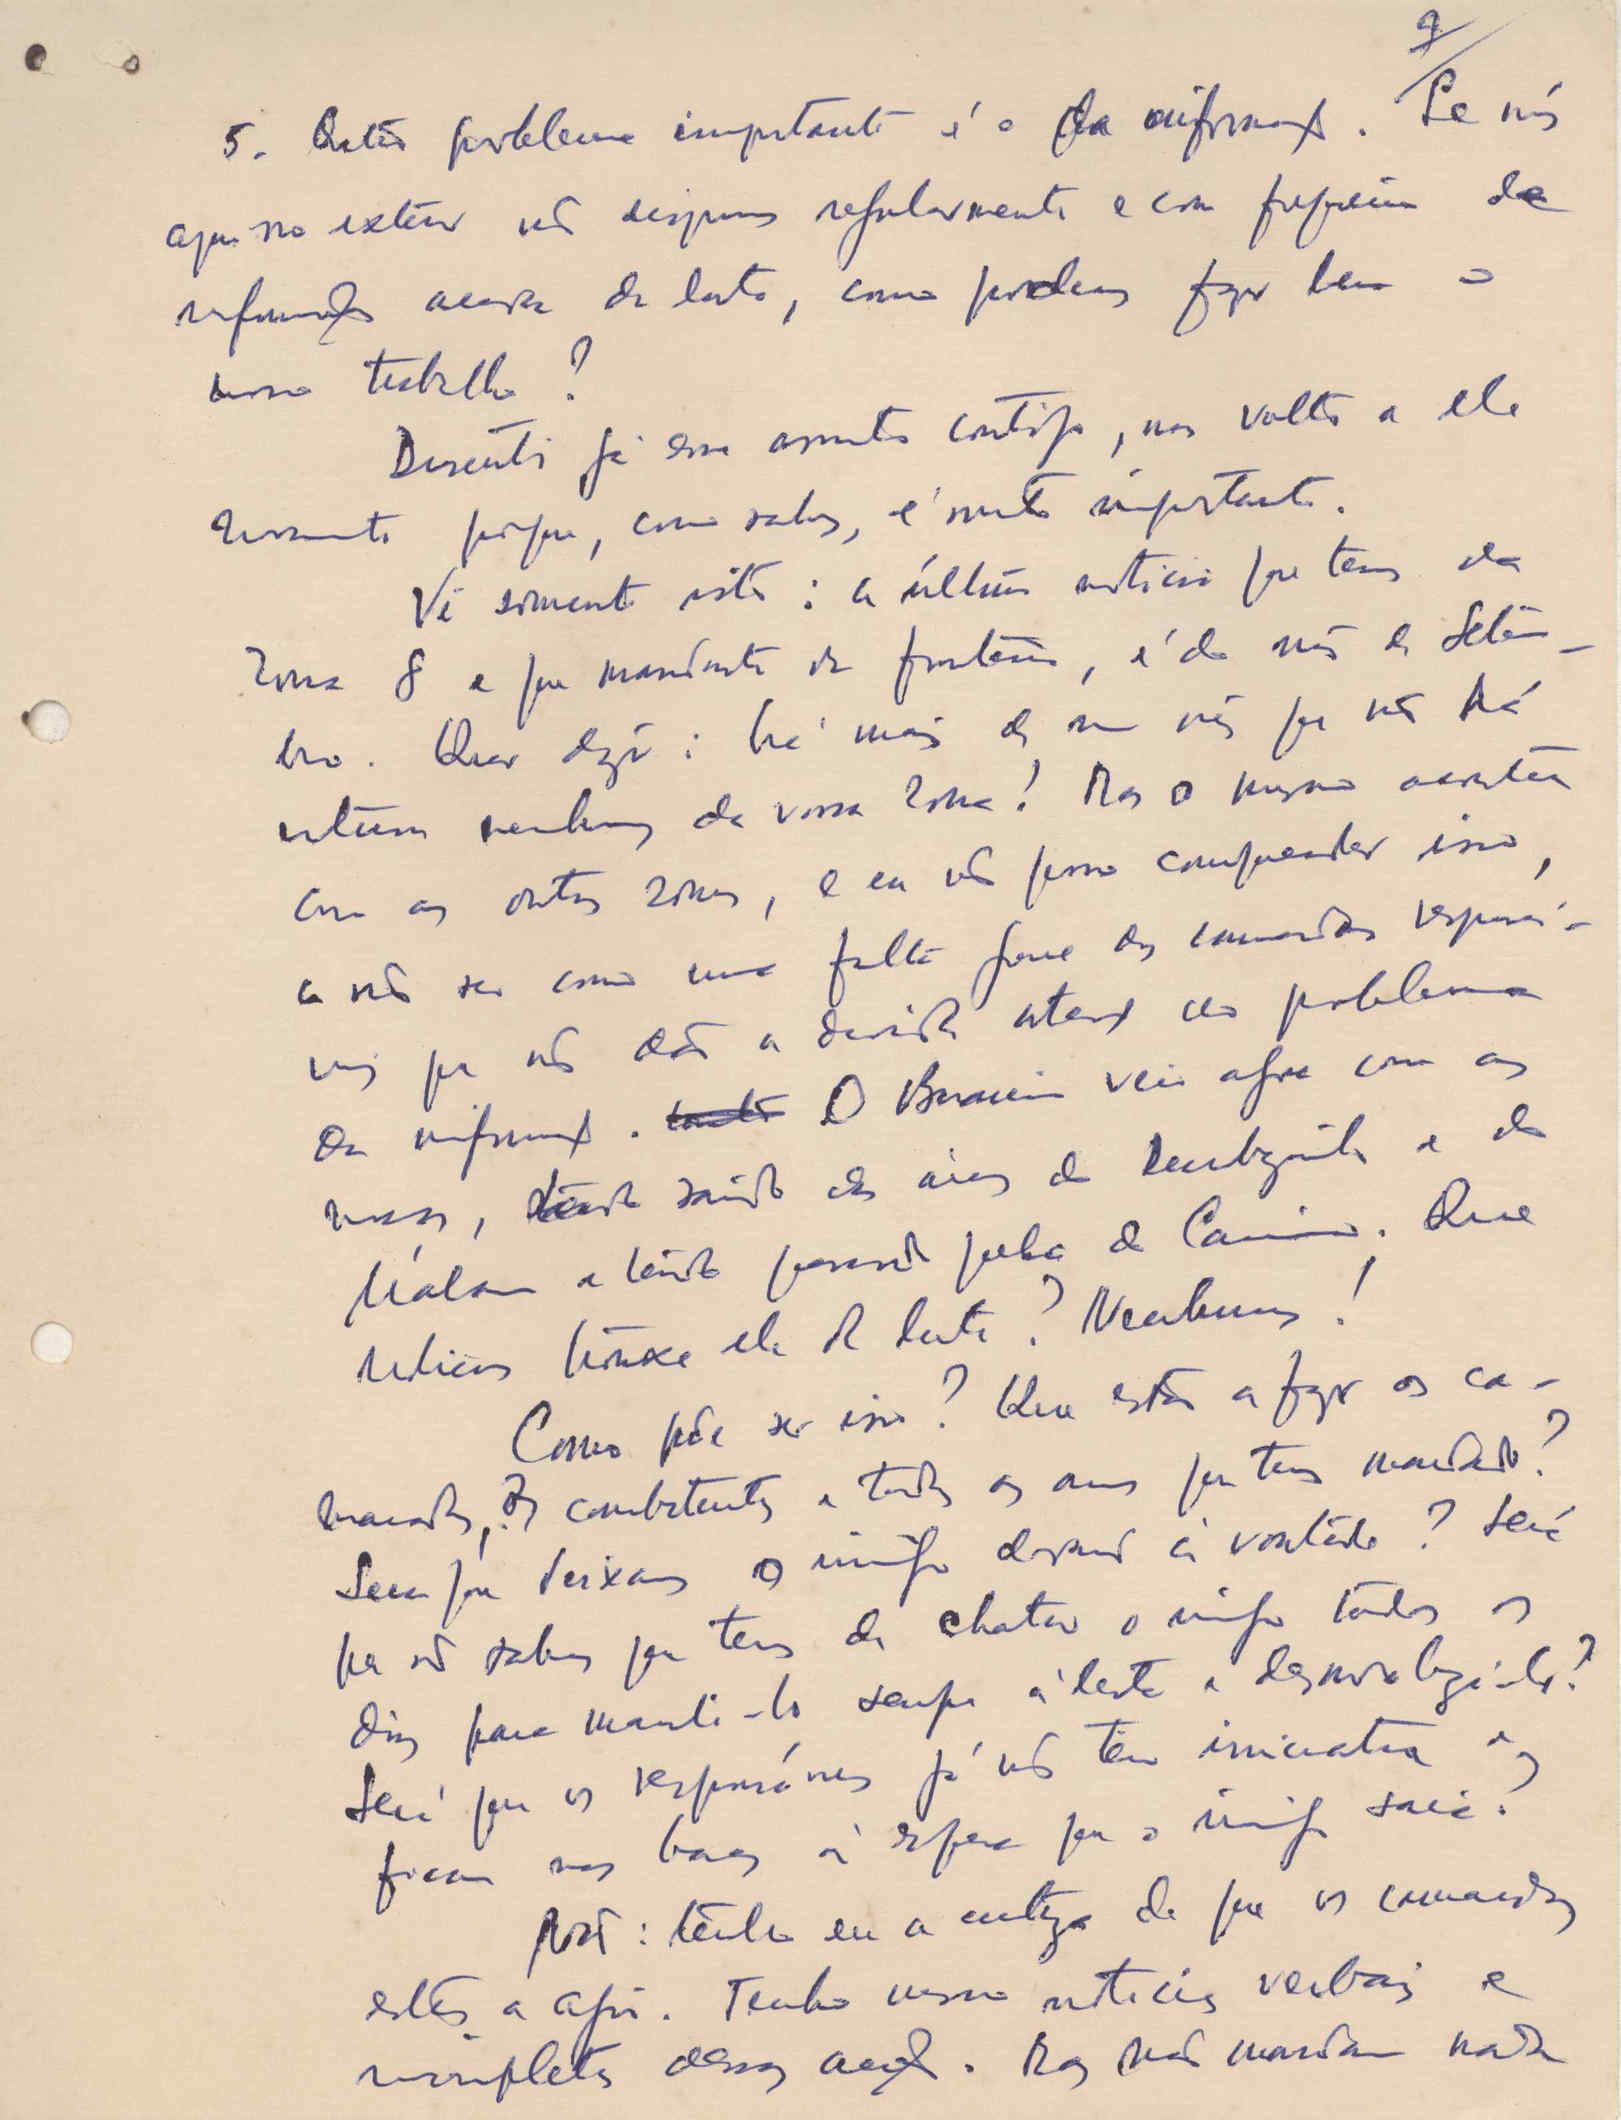 9
5. Outro problema importante é o da informação. Se nós
aqui no exterior não dispomos regularmente e com frequência de
informações acerca da luta, como podemos fazer bem o
nosso trabalho?
Discuti já esse assunto contigo, mas volto a ele
novamente porque, como sabes, é muito importante.
Vê somente isto: a última notícia que temos da
Zona 8 e que mandaste da fronteira, é do mês de Setem-
bro. Quer dizer: há mais de um mês que não há
notícias nenhumas da vossa Zona! Mas o mesmo acontece
com as outras zonas, e eu não posso compreender isso,
a não ser como uma falta grave dos camaradas responsá-
veis que não dão a devida atenção ao problema
da informação. O veio agora com as
massas, tendo saído das áreas de e de
e tendo passado pela de . Que
notícias trouxe ele da luta? Nenhumas!
Como pode ser isso? Que estão a fazer os ca-
maradas, os combatentes e todas as armas que temos mandado?
Será que deixam o inimigo dormir à vontade? Será
que não sabem que temos de chatear o inimigo todos os
dias para mantê-lo sempre alerta e desmoralizá-lo?
Será que os responsáveis já não têm iniciativa e
ficam nas bases à espera que o inimigo saia?
Não: tenho eu a certeza de que os camaradas
estão a agir. Tenho mesmo notícias verbais e
incompletas dessas acções. Mas não mandam nada